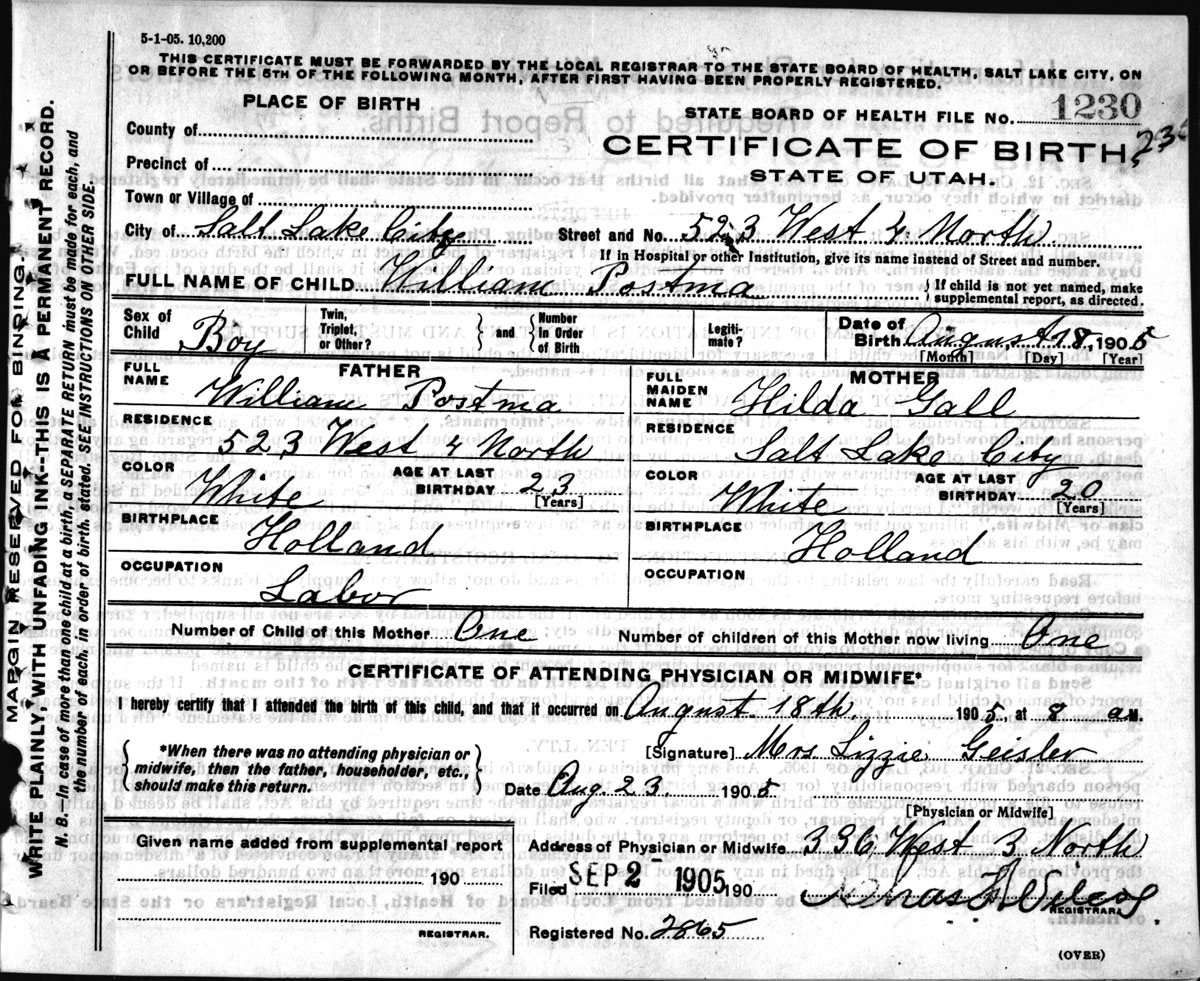 5-1-05. 10,200
THIS CERTIFICATE MUST BE FORWARDED BY THE LOCAL REGISTRAR TO THE STATE BOARD OF HEALTH, SALT LAKE CITY, ON
OR BEFORE THE 5TH OF THE FOLLOWING MONTH, AFTER FIRST HAVING BEEN PROPERLY REGISTERED.
PLACE OF BIRTH
STATE BOARD OF HEALTH FILE No. 1230
County of
CERTIFICATE OF BIRTH,
Precinct of
STATE OF UTAH.
Town or Village of
City of Salt Lake City Street and No. 523 West 4 North
If in Hospital or other Institution, give its name instead of Street and number.
FULL NAME OF CHILD William Postma { If child is not yet named, make
supplemental report, as directed.
Sex of
Child Boy
Twin,
Triplet,
or Other? } and { Number
In Order
of Birth
Legiti-
mate?
Date of
Birth August 18, 1905
[Month] [Day] [Year]
FATHER
FULL
NAME William Postma
RESIDENCE
523 West 4 North
COLOR White AGE AT LAST
BIRTHDAY 23
[Years]
BIRTHPLACE
Holland
OCCUPATION
Labor
MOTHER
FULL
MAIDEN
NAME Hilda Gall
RESIDENCE
Salt Lake City
COLOR White AGE AT LAST
BIRTHDAY 20
[Years]
BIRTHPLACE
Holland
OCCUPATION
Number of Child of this Mother One Number of children of this Mother now living One
CERTIFICATE OF ATTENDING PHYSICIAN OR MIDWIFE*
I hereby certify that I attended the birth of this child, and that it occurred on August 18th 1905, at 8 a M.
*When there was no attending physician or
midwife, then the father, householder, etc.,
should make this return.
[Signature] Mrs Lizzie Geisler
Date Aug. 23, 1905
[Physician or Midwife]
Given name added from supplemental report
190
REGISTRAR.
Address of Physician or Midwife 336 West 3 North
Filed SEP 2 1905 190
REGISTRAR.
Registered No. 2865
(OVER)
MARGIN RESERVED FOR BINDING
WRITE PLAINLY WITH UNFADING INK--THIS IS A PERMANENT RECORD.
N. B.—In case of more than one child at a birth, a SEPARATE RETURN must be made for each, and
the number of each, in order of birth, stated. SEE INSTRUCTIONS ON OTHER SIDE.